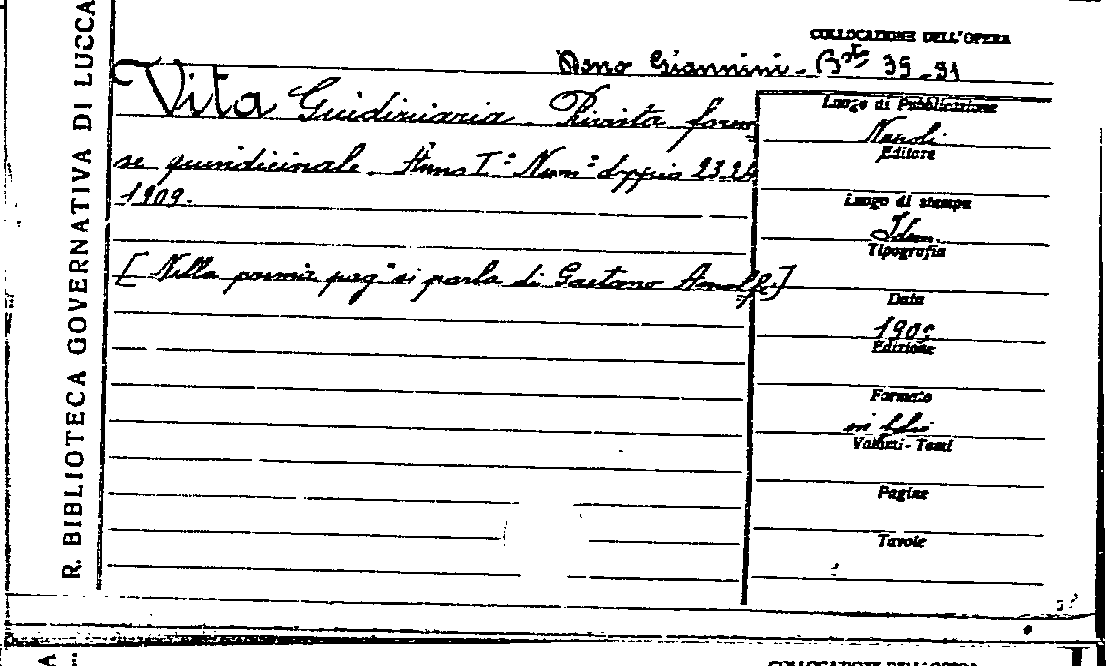 R. BIBLIOTECA GOVERNATIVA DI LUCCA
COLLOCAZIONE DELL'OPERA
Dono Giannini - Bta 39-91
Vita Giudiziaria - Rivista foren
se quindicinale. Anno I° Num° doppio 23.24
1909.
[Nella prima pag° si parla di Gaetano Arnolfi]
Luogo di Pubblicazione
Napoli
Editore
Luogo di stampa
Idem.
Tipografia
Data
1909
Edizione
Formato
in folio
Volumi - Tomi
Pagine
Tavole
A
COLLOCAZIONE DELL'OPERA